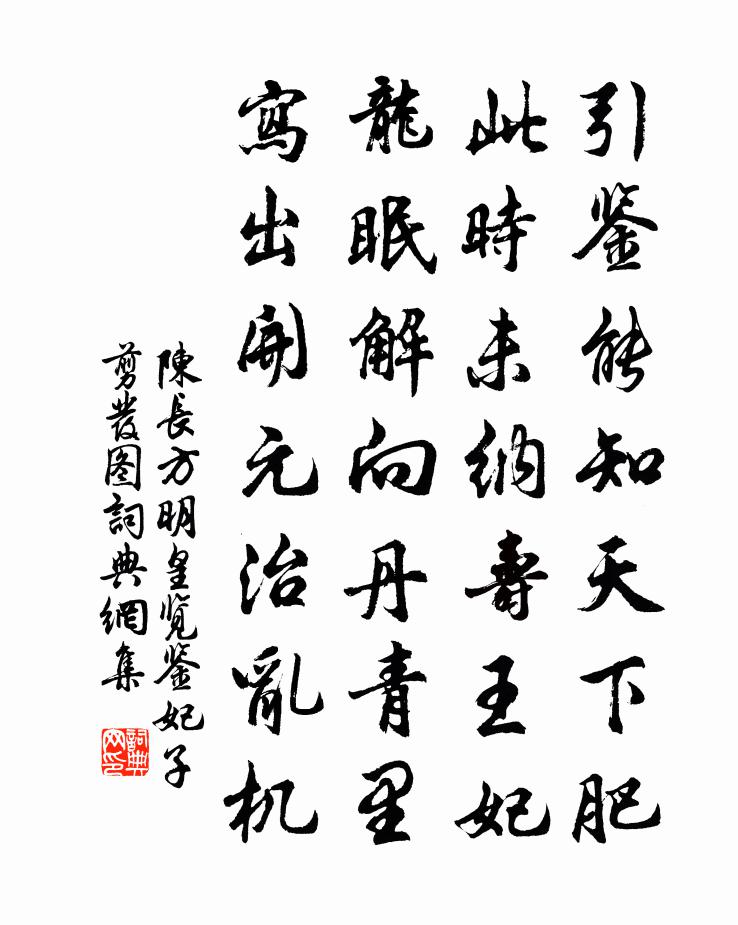 引鉴能知天下肥
此時未纳壽王妃
龍眠解向丹青里
寫出開元治亂机
陳長方明皇览鉴妃子
剪發图詞典網集
詞典网印